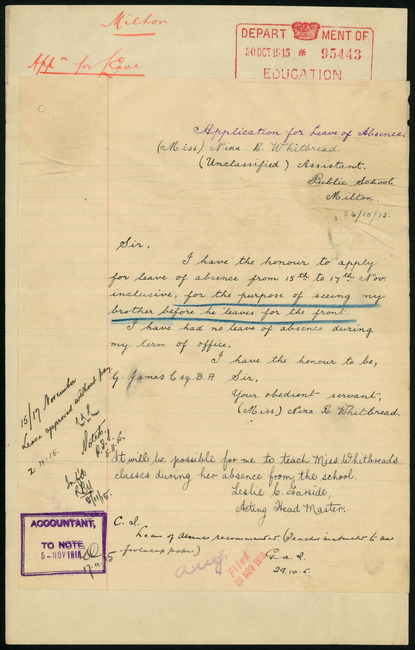 Milton
Appn for Leave
DEPARTMENT OF
30 OCT 1915 * 95443
EDUCATION
Application for Leave of Absence
(Miss) Nina R. Whitbread.
(Unclassified) Assistant.
Public School
Milton.
26/10/15.
Sir,
I have the honour to apply
for leave of absence from 15th to 17th Nov.
inclusive, for the purpose of seeing my
brother before he leaves for the front.
I have had no leave of absence during
my term of office.
I have the honour to be,
G. James Esq. B.A Sir,
Your obedient servant,
(Miss) Nina R. Whitbread.
15/17 November
Leave approved without pay
2.11.15.
Noted
5.11.5.
It will be possible for me to teach Miss Whitbread's
classes during her absence from the school.
Leslie C. Garside,
Acting Head Master.
ACCOUNTANT,
TO NOTE
5-NOV 1915
C. I.
Leave of absence recommended. (Teacher instructed to use
foolscap paper)
29.10.5.
Filed
NOV 1915